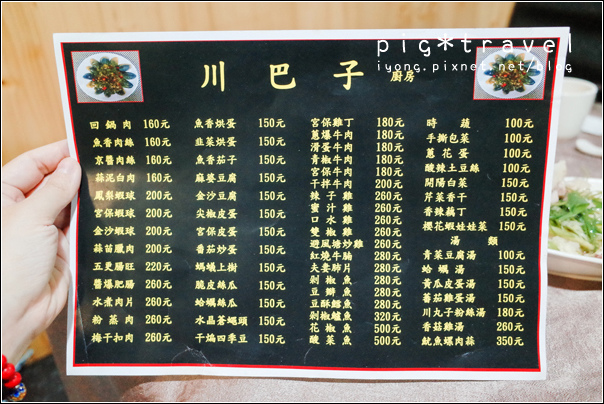 pig*travel
iyong.pixnet.net/blog
川巴子 廚房
回鍋肉 160元
魚香肉絲 160元
京醬肉絲 160元
蒜泥白肉 160元
鳳梨蝦球 200元
宮保蝦球 200元
金沙蝦球 200元
蒜苗臘肉 200元
五更腸旺 220元
醬爆肥腸 260元
水煮肉片 260元
粉蒸肉 260元
梅干扣肉 260元
魚香烘蛋 150元
韭菜烘蛋 150元
魚香茄子 150元
麻婆豆腐 150元
金沙豆腐 150元
尖椒皮蛋 150元
宮保皮蛋 150元
番茄炒蛋 150元
螞蟻上樹 150元
脆皮絲瓜 150元
蛤蠣絲瓜 150元
水晶茶蠅頭 150元
干煸四季豆 150元
宮保雞丁 180元
蔥爆牛肉 180元
滑蛋牛肉 180元
青椒牛肉 180元
宮保牛肉 180元
干拌牛肉 200元
辣子雞 260元
蜜汁雞 260元
口水雞 260元
雙椒雞 260元
避風塘炒雞 260元
紅燒牛腩 280元
夫妻肺片 280元
剁椒魚 280元
豆瓣魚 280元
豆酥鱈魚 280元
剁椒鱸魚 320元
花椒魚 500元
酸菜魚 500元
時蔬 100元
手撕包菜 100元
蔥花蛋 100元
酸辣土豆絲 100元
開陽白菜 150元
芹菜香干 150元
香辣藕丁 150元
櫻花蝦娃娃菜 150元
湯類
青菜豆腐湯 100元
蛤蠣湯 150元
黃瓜皮蛋湯 150元
蕃茄雞蛋湯 150元
川丸子粉絲湯 180元
香菇雞湯 260元
魷魚螺肉蒜 350元